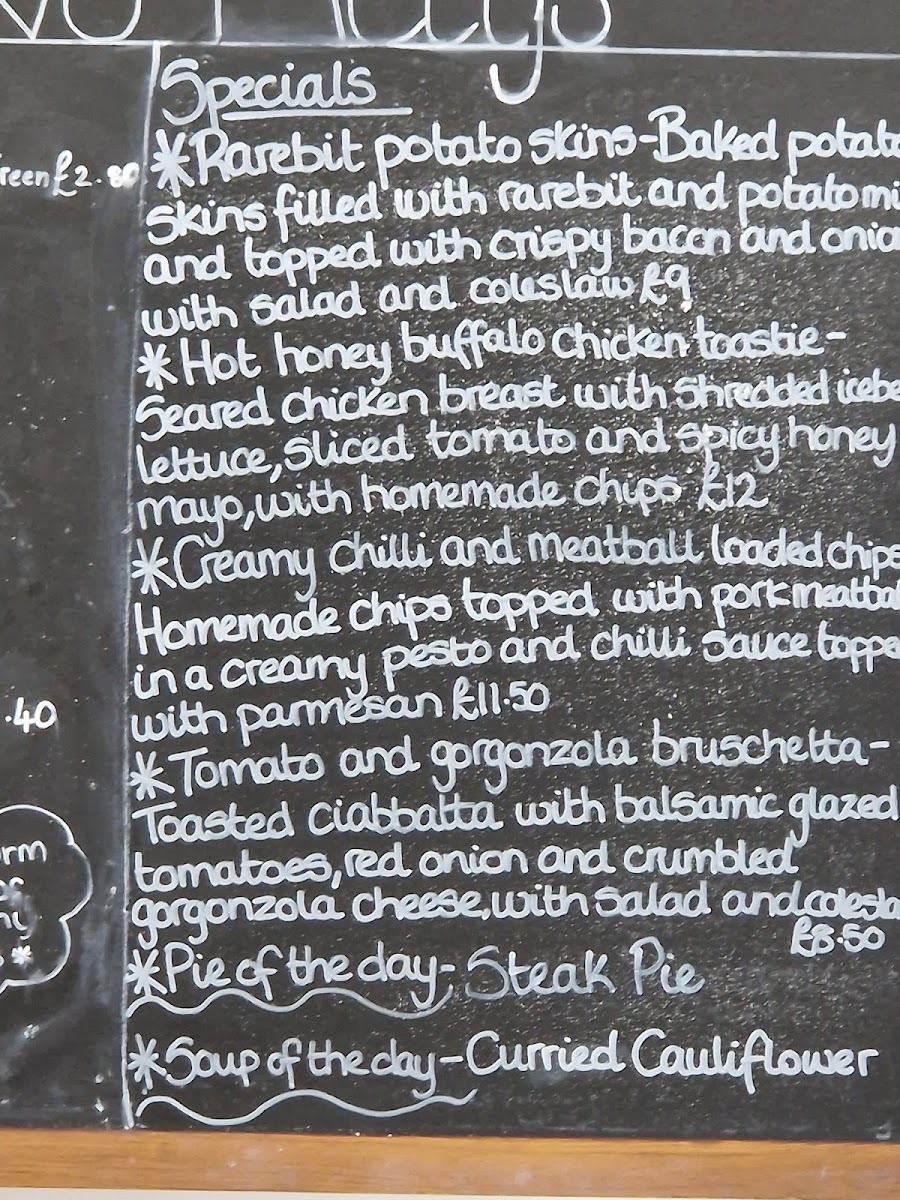 Specials
reen £2.80
*Rarebit potato skins-Baked potato
skins filled with rarebit and potato mi
and topped with crispy bacon and onio
with salad and coleslaw £9
*Hot honey buffalo chicken toastie-
Seared chicken breast with shredded icebe
lettuce, sliced tomato and spicy honey
mayo, with homemade chips £12
*Creamy chilli and meatball loaded chips
Homemade chips topped with pork meatbal
in a creamy pesto and chilli sauce toppe
with parmesan £11.50
.40
*Tomato and gorgonzola bruschetta-
Toasted ciabbatta with balsamic glazed
tomatoes, red onion and crumbled
gorgonzola cheese, with salad and colesla
£8.50
*Pie of the day- Steak Pie
*Soup of the day-Curried Cauliflower